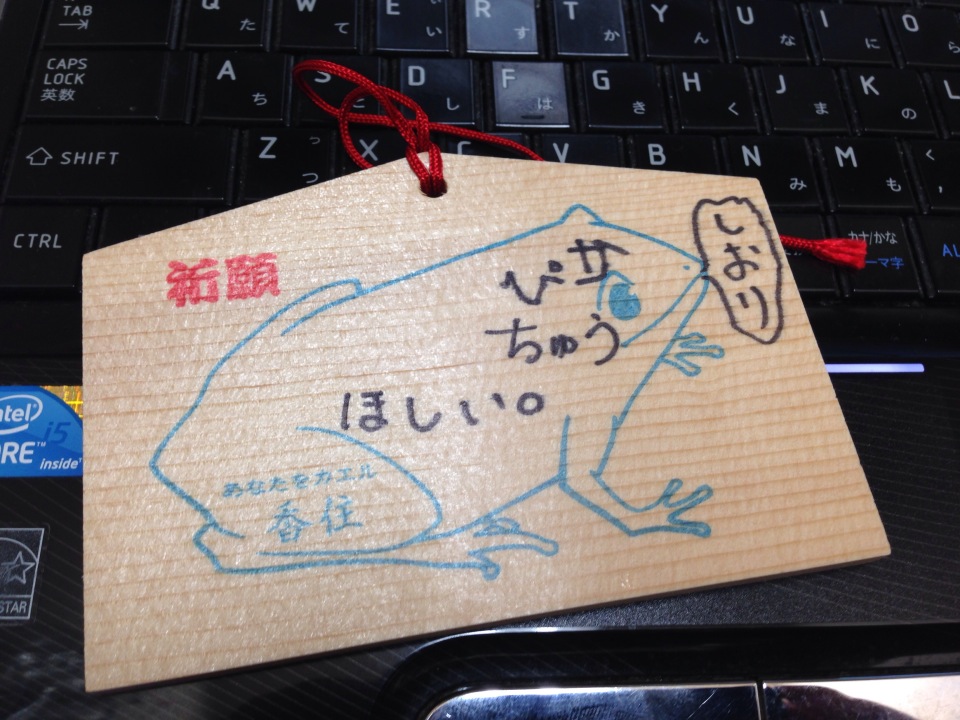 TAB
Q た W て E い R す T か Y ん U な I に O ら
CAPS LOCK 英数
A ち S と D し F は G き H く J ま K の L
SHIFT
Z っ つ X C V B N み M も < ,
CTRL
カナ/かな
ーマ字
AL
祈願
サ
ぴ
ちゅう
ほしい。
しおり
あなたをカエル
香住
intel
CORE™ i5
inside™
STAR